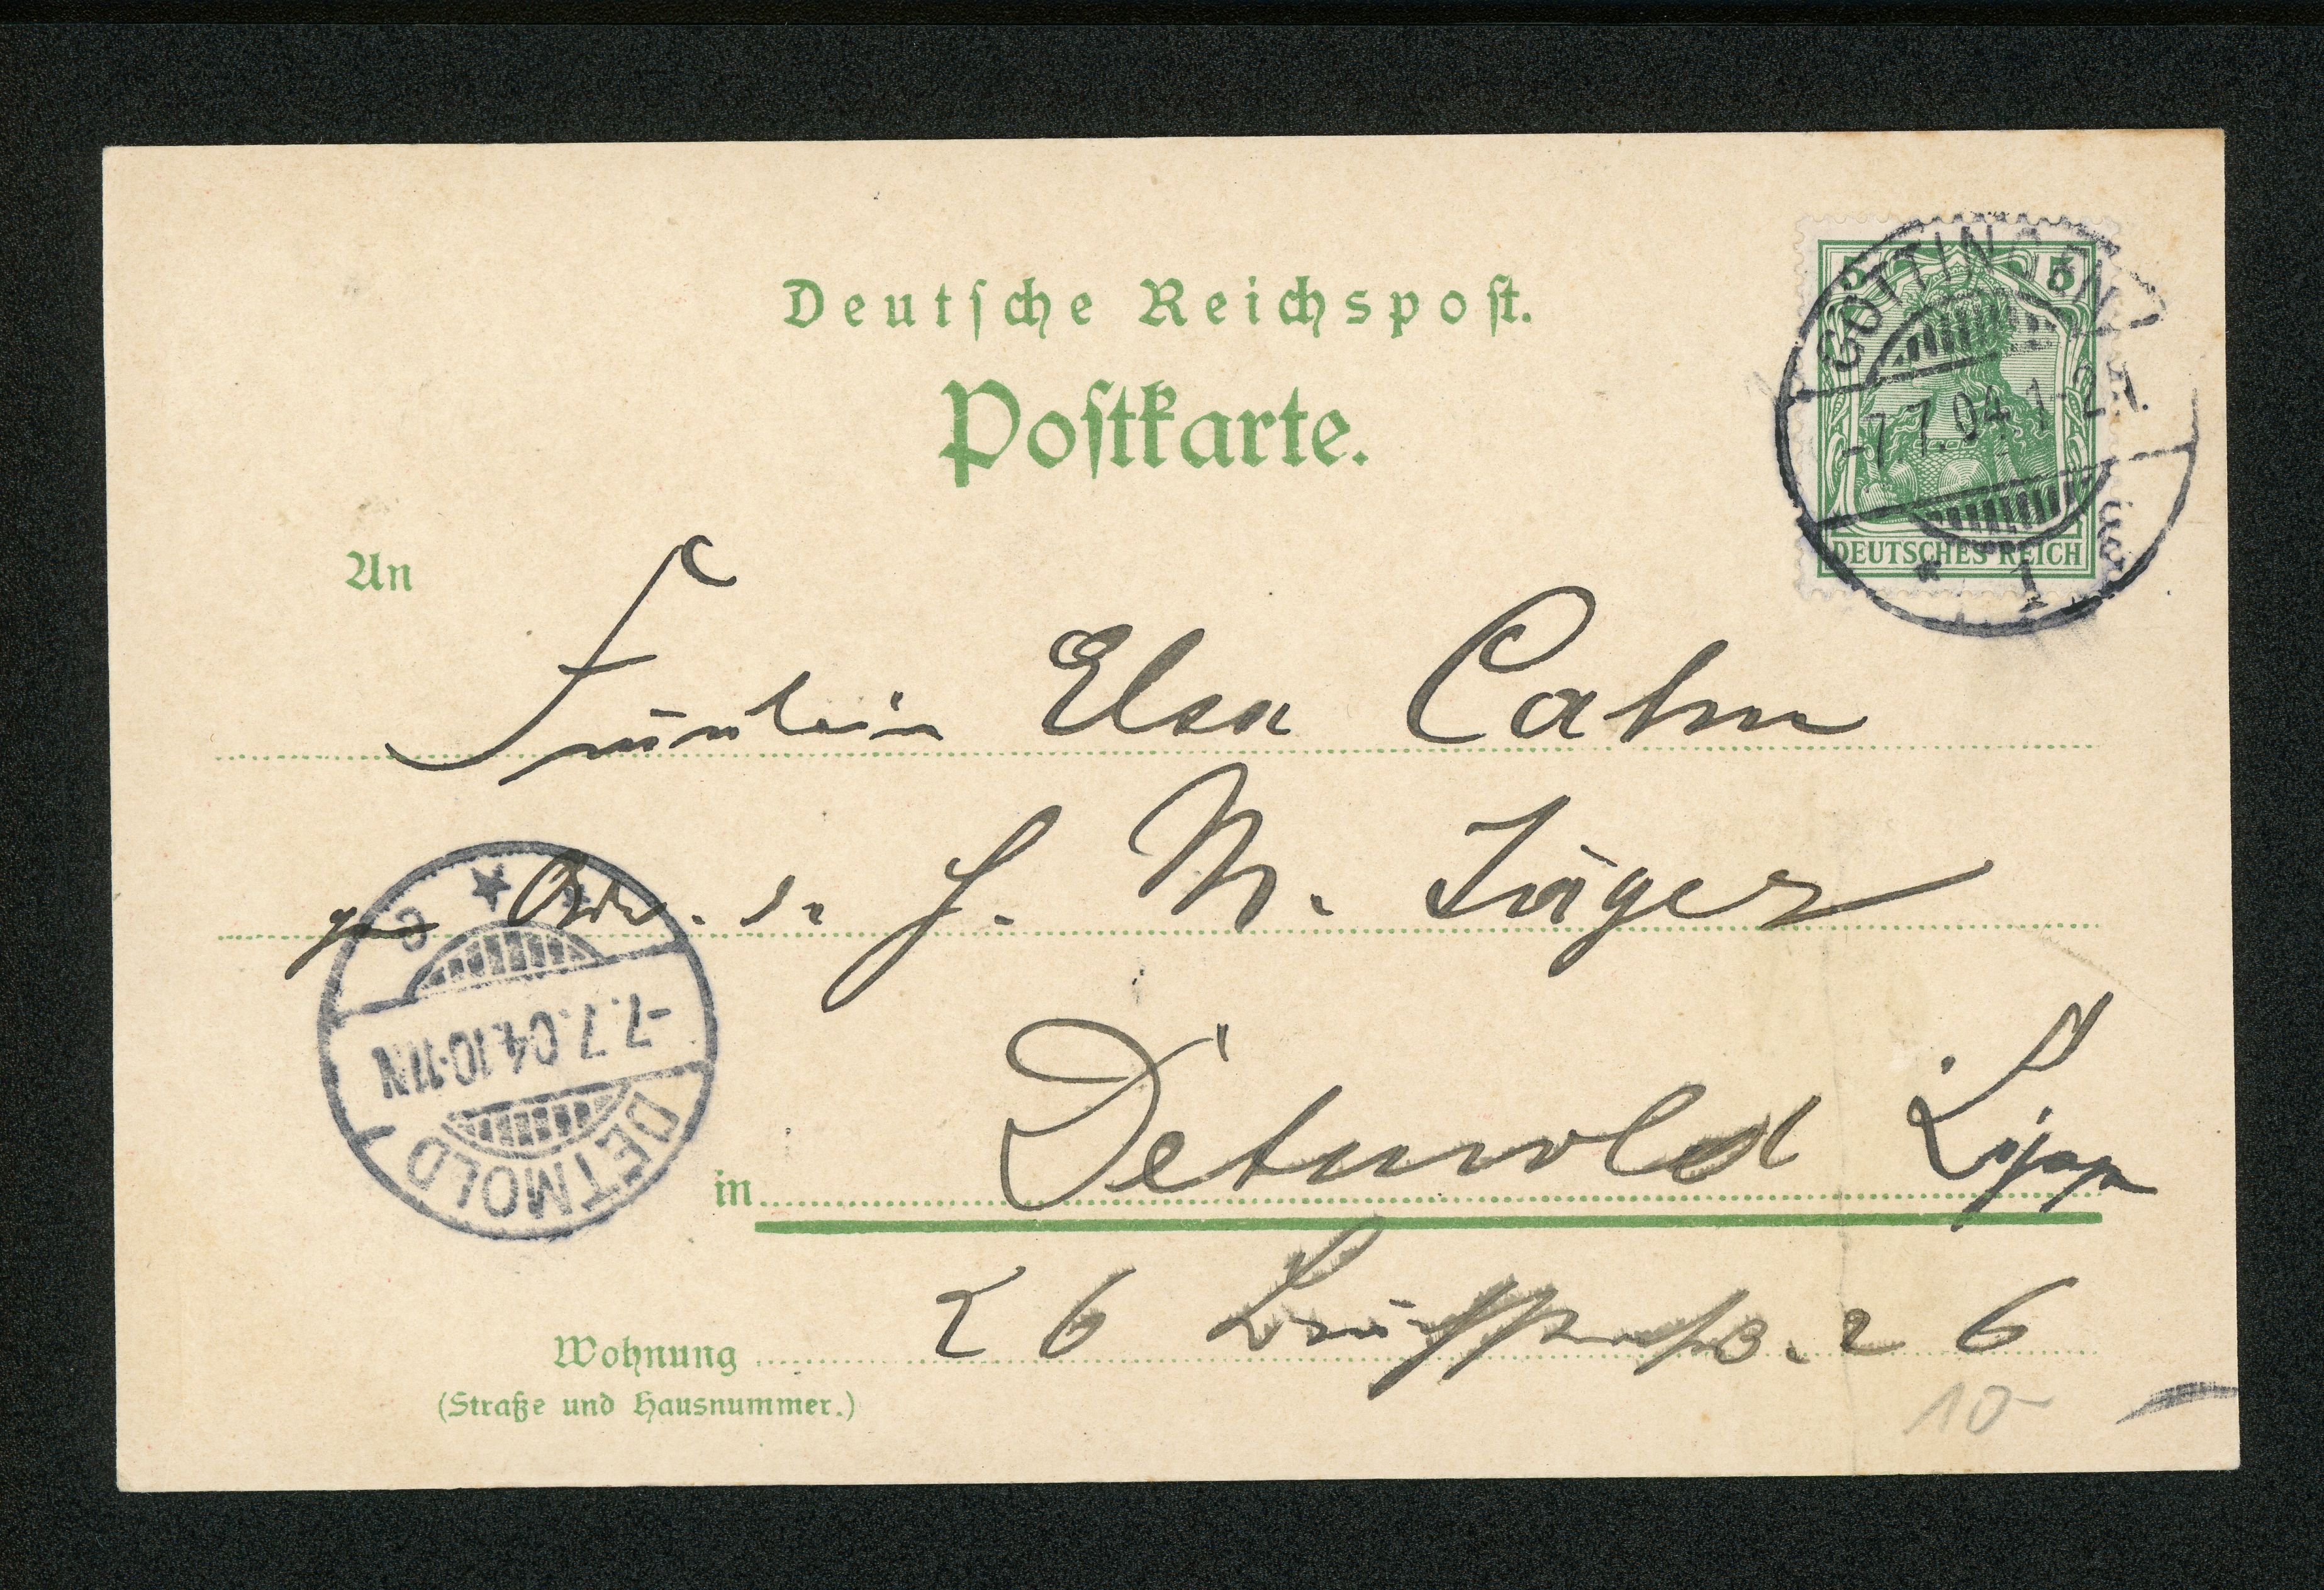 Deutsche Reichspost.
Postkarte.
5 5
DEUTSCHES REICH
GÖTTINGEN
-7.7.04.1-2N.
* 1
An
Fräulein Elsa Cahn
Adr. H. M. Jäger
* c
-7.7.04.10-11N
DETMOLD
in Detmold Lippe
Wohnung 26 26
(Straße und Hausnummer.)
10-